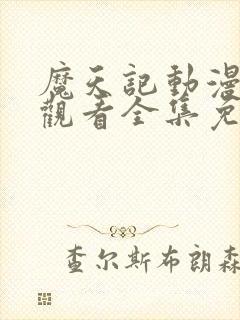 魔天記動漫
觀看全集免
查尔斯布朗森